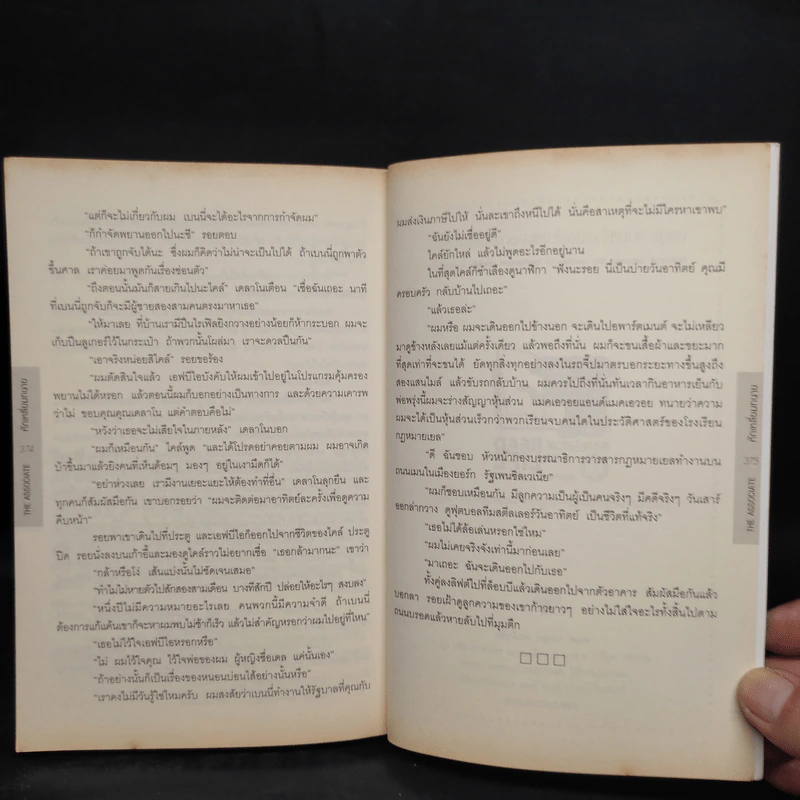 "แต่ก็จะไม่เกี่ยวกับผม เบนนี่จะได้อะไรจากการกำจัดผม"
"ก็กำจัดพยานออกไปนะซี" รอยตอบ
"ถ้าเขาถูกจับได้นะ ซึ่งผมก็คิดว่าไม่น่าจะเป็นไปได้ ถ้าเบนนี่ถูกพาตัว
ขึ้นศาล เราค่อยมาพูดกันเรื่องซ่อนตัว"
"ถึงตอนนั้นมันก็สายเกินไปนะไคล์" เดลาโนเตือน "เชื่อฉันเถอะ นาที
ที่เบนนี่ถูกจับก็จะมีผู้ชายสองสามคนตรงมาหาเธอ"
"ให้มาเลย ที่บ้านเรามีปืนไรเฟิลยิงกวางอย่างน้อยก็ห้ากระบอก ผมจะ
เก็บปืนลูเกอร์ไว้ในกระเป๋า ถ้าพวกนั้นโผล่มา เราจะดวลปืนกัน"
"เอาจริงหน่อยสิไคล์" รอยขอร้อง
"ผมตัดสินใจแล้ว เอฟบีไอบังคับให้ผมเข้าไปอยู่ในโปรแกรมคุ้มครอง
พยานไม่ได้หรอก แล้วตอนนี้ผมก็บอกอย่างเป็นทางการ และด้วยความเคารพ
ว่าไม่ ขอบคุณคุณเดลาโน แต่คำตอบคือไม่"
"หวังว่าเธอจะไม่เสียใจในภายหลัง" เดลาโนบอก
"ผมก็เหมือนกัน" ไคล์พูด "และได้โปรดอย่าคอยตามผม ผมอาจเกิด
บ้าขึ้นมาแล้วยิงคนที่เห็นด้อมๆ มองๆ อยู่ในเงามืดก็ได้"
"อย่าห่วงเลย เรามีงานเยอะแยะให้ต้องทำที่อื่น" เดลาโนลุกยืน และ
ทุกคนก็สัมผัสมือกัน เขาบอกรอยว่า "ผมจะติดต่อมาอาทิตย์ละครั้งเพื่อดูความ
คืบหน้า"
รอยพาเขาเดินไปที่ประตู และเอฟบีไอก็ออกไปจากชีวิตของไคล์ ประตู
ปิด รอยนั่งลงบนเก้าอี้และมองดูไคล์ราวไม่อยากเชื่อ "เธอกล้ามากนะ" เขาว่า
"กล้าหรือโง่ เส้นแบ่งนั้นไม่ชัดเจนเสมอ"
"ทำไมไม่หายตัวไปสักสองสามเดือน บางทีสักปี ปล่อยให้อะไรๆ สงบลง"
"หนึ่งปีไม่มีความหมายอะไรเลย คนพวกนี้มีความจำดี ถ้าเบนนี่
ต้องการแก้แค้นเขาก็จะหาผมพบไม่ช้าก็เร็ว แล้วไม่สำคัญหรอกว่าผมไปอยู่ที่ไหน"
"เธอไม่ไว้ใจเอฟบีไอหรอกหรือ"
"ไม่ ผมไว้ใจคุณ ไว้ใจพ่อของผม ผู้หญิงชื่อเดล แค่นั้นเอง"
"ถ้าอย่างนั้นก็เป็นเรื่องของหนอนบ่อนไส้อย่างนั้นหรือ"
"เราคงไม่มีวันรู้ใช่ไหมครับ ผมสงสัยว่าเบนนี่ทำงานให้รัฐบาลที่คุณกับ
THE ASSOCIATE 374 หักเหลี่ยมทนาย
ผมส่งเงินภาษีไปให้ นั่นละเขาถึงหนีไปได้ นั่นคือสาเหตุที่จะไม่มีใครหาเขาพบ"
"ฉันยังไม่เชื่ออยู่ดี"
ไคล์ยักไหล่ แล้วไม่พูดอะไรอีกอยู่นาน
ในที่สุดไคล์ก็ชำเลืองดูนาฬิกา "ฟังนะรอย นี่เป็นบ่ายวันอาทิตย์ คุณมี
ครอบครัว กลับบ้านไปเถอะ"
"แล้วเธอล่ะ"
"ผมหรือ ผมจะเดินออกไปข้างนอก จะเดินไปอพาร์ตเมนต์ จะไม่เหลียว
มาดูข้างหลังเลยแม้แต่ครั้งเดียว แล้วพอถึงที่นั่น ผมก็จะขนเสื้อผ้าและขยะมาก
ที่สุดเท่าที่จะขนได้ ยัดทุกสิ่งทุกอย่างลงในรถจี๊ปมาตรบอกระยะทางขึ้นสูงถึง
สองแสนไมล์ แล้วขับรถกลับบ้าน ผมควรไปถึงที่นั่นทันเวลากินอาหารเย็นกับ
พ่อพรุ่งนี้ผมจะร่างสัญญาหุ้นส่วน แมคเอวอยแอนด์แมคเอวอย ทนายว่าความ
ผมจะได้เป็นหุ้นส่วนเร็วกว่าพวกเรียนจบคนใดในประวัติศาสตร์ของโรงเรียน
กฎหมายเยล"
"ดี ฉันชอบ หัวหน้ากองบรรณาธิการวารสารกฎหมายเยลทำงานบน
ถนนเมนในเมืองยอร์ก รัฐเพนซิลเวเนีย"
"ผมก็ชอบเหมือนกัน มีลูกความเป็นผู้เป็นคนจริงๆ มีคดีจริงๆ วันเสาร์
ออกล่ากวาง ดูฟุตบอลทีมสตีลเลอร์วันอาทิตย์ เป็นชีวิตที่แท้จริง"
"เธอไม่ได้ล้อเล่นหรอกใช่ไหม"
"ผมไม่เคยจริงจังเท่านี้มาก่อนเลย"
"มาเถอะ ฉันจะเดินออกไปกับเธอ"
ทั้งคู่ลงลิฟต์ไปที่ล็อบบีแล้วเดินออกไปจากตัวอาคาร สัมผัสมือกันแล้ว
บอกลา รอยเฝ้าดูลูกความของเขาก้าวยาวๆ อย่างไม่ใส่ใจอะไรทั้งสิ้นไปตาม
ถนนบรอดแล้วหายลับไปที่มุมตึก
THE ASSOCIATE 375 หักเหลี่ยมทนาย